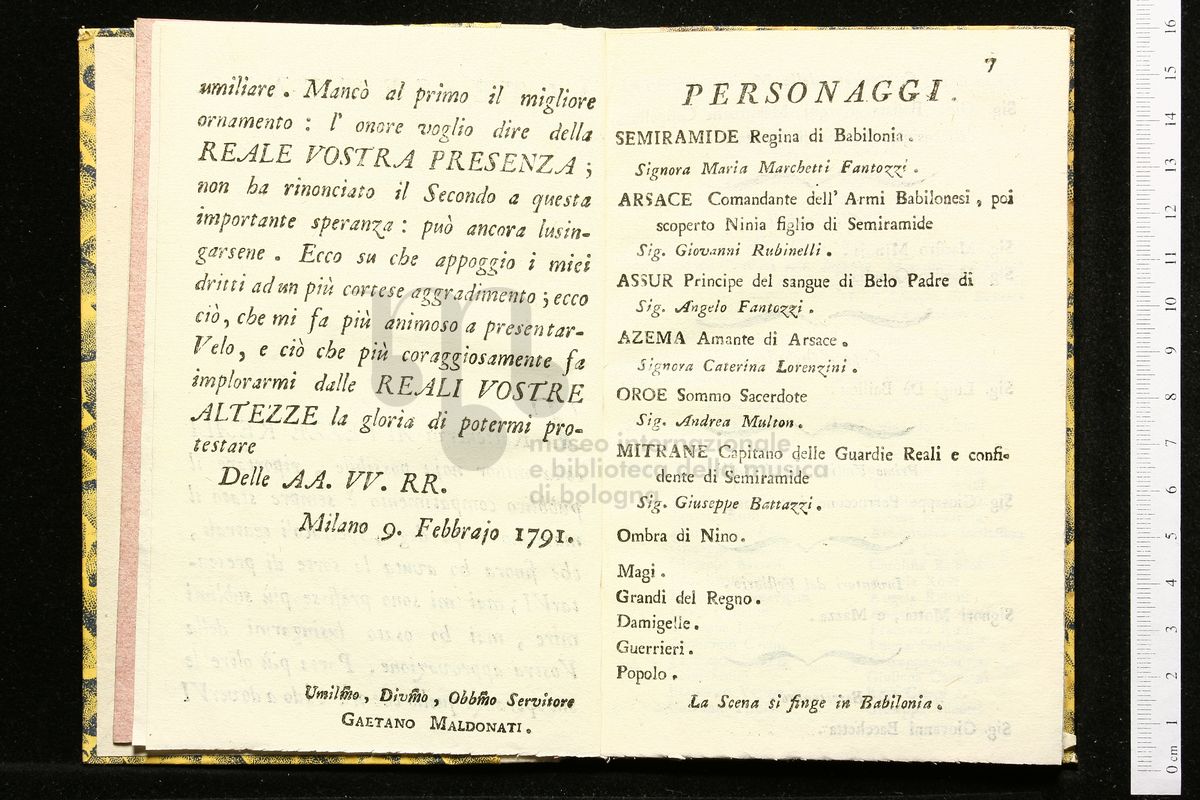 umiliare . Mancò al primo il migliore
ornamento : l' onore voglio dire della
REALE VOSTRA PRESENZA ;
non ha rinonciato il Secondo a questa
importante speranza : può ancora lusin-
garsene . Ecco su che appoggio i miei
dritti ad un più cortese aggradimento ; ecco
ciò, che mi fa più animoso a presentar-
Velo, e ciò che più coraggiosamente fa
implorarmi dalle REALI VOSTRE
ALTEZZE la gloria di potermi pro-
testare
Delle AA. VV. RR.
Milano 9. Febbrajo 1791.
Umilmo, Divmo, Obbmo Servitore
GAETANO MALDONATI.
7
PERSONAGGI.
SEMIRAMIDE Regina di Babilonia.
Signora Maria Marchetti Fantozzi.
ARSACE Comandante dell' Armi Babilonesi, poi
scoperto Ninia figlio di Semiramide
Sig. Giovanni Rubinelli.
ASSUR Principe del sangue di Belo Padre di
Sig. Angelo Fantozzi.
AZEMA Amante di Arsace.
Signora Caterina Lorenzini.
OROE Sommo Sacerdote
Sig. Andrea Multon.
MITRANE Capitano delle Guardie Reali e confi-
dente di Semiramide
Sig. Giuseppe Battazzi.
Ombra di Nino.
Magi.
Grandi del Regno.
Damigelle.
Guerrieri.
Popolo.
La Scena si finge in Babilonia.
museo internazionale
e biblioteca della musica
di bologna
0 cm 1 2 3 4 5 6 7 8 9 10 11 12 13 14 15 16